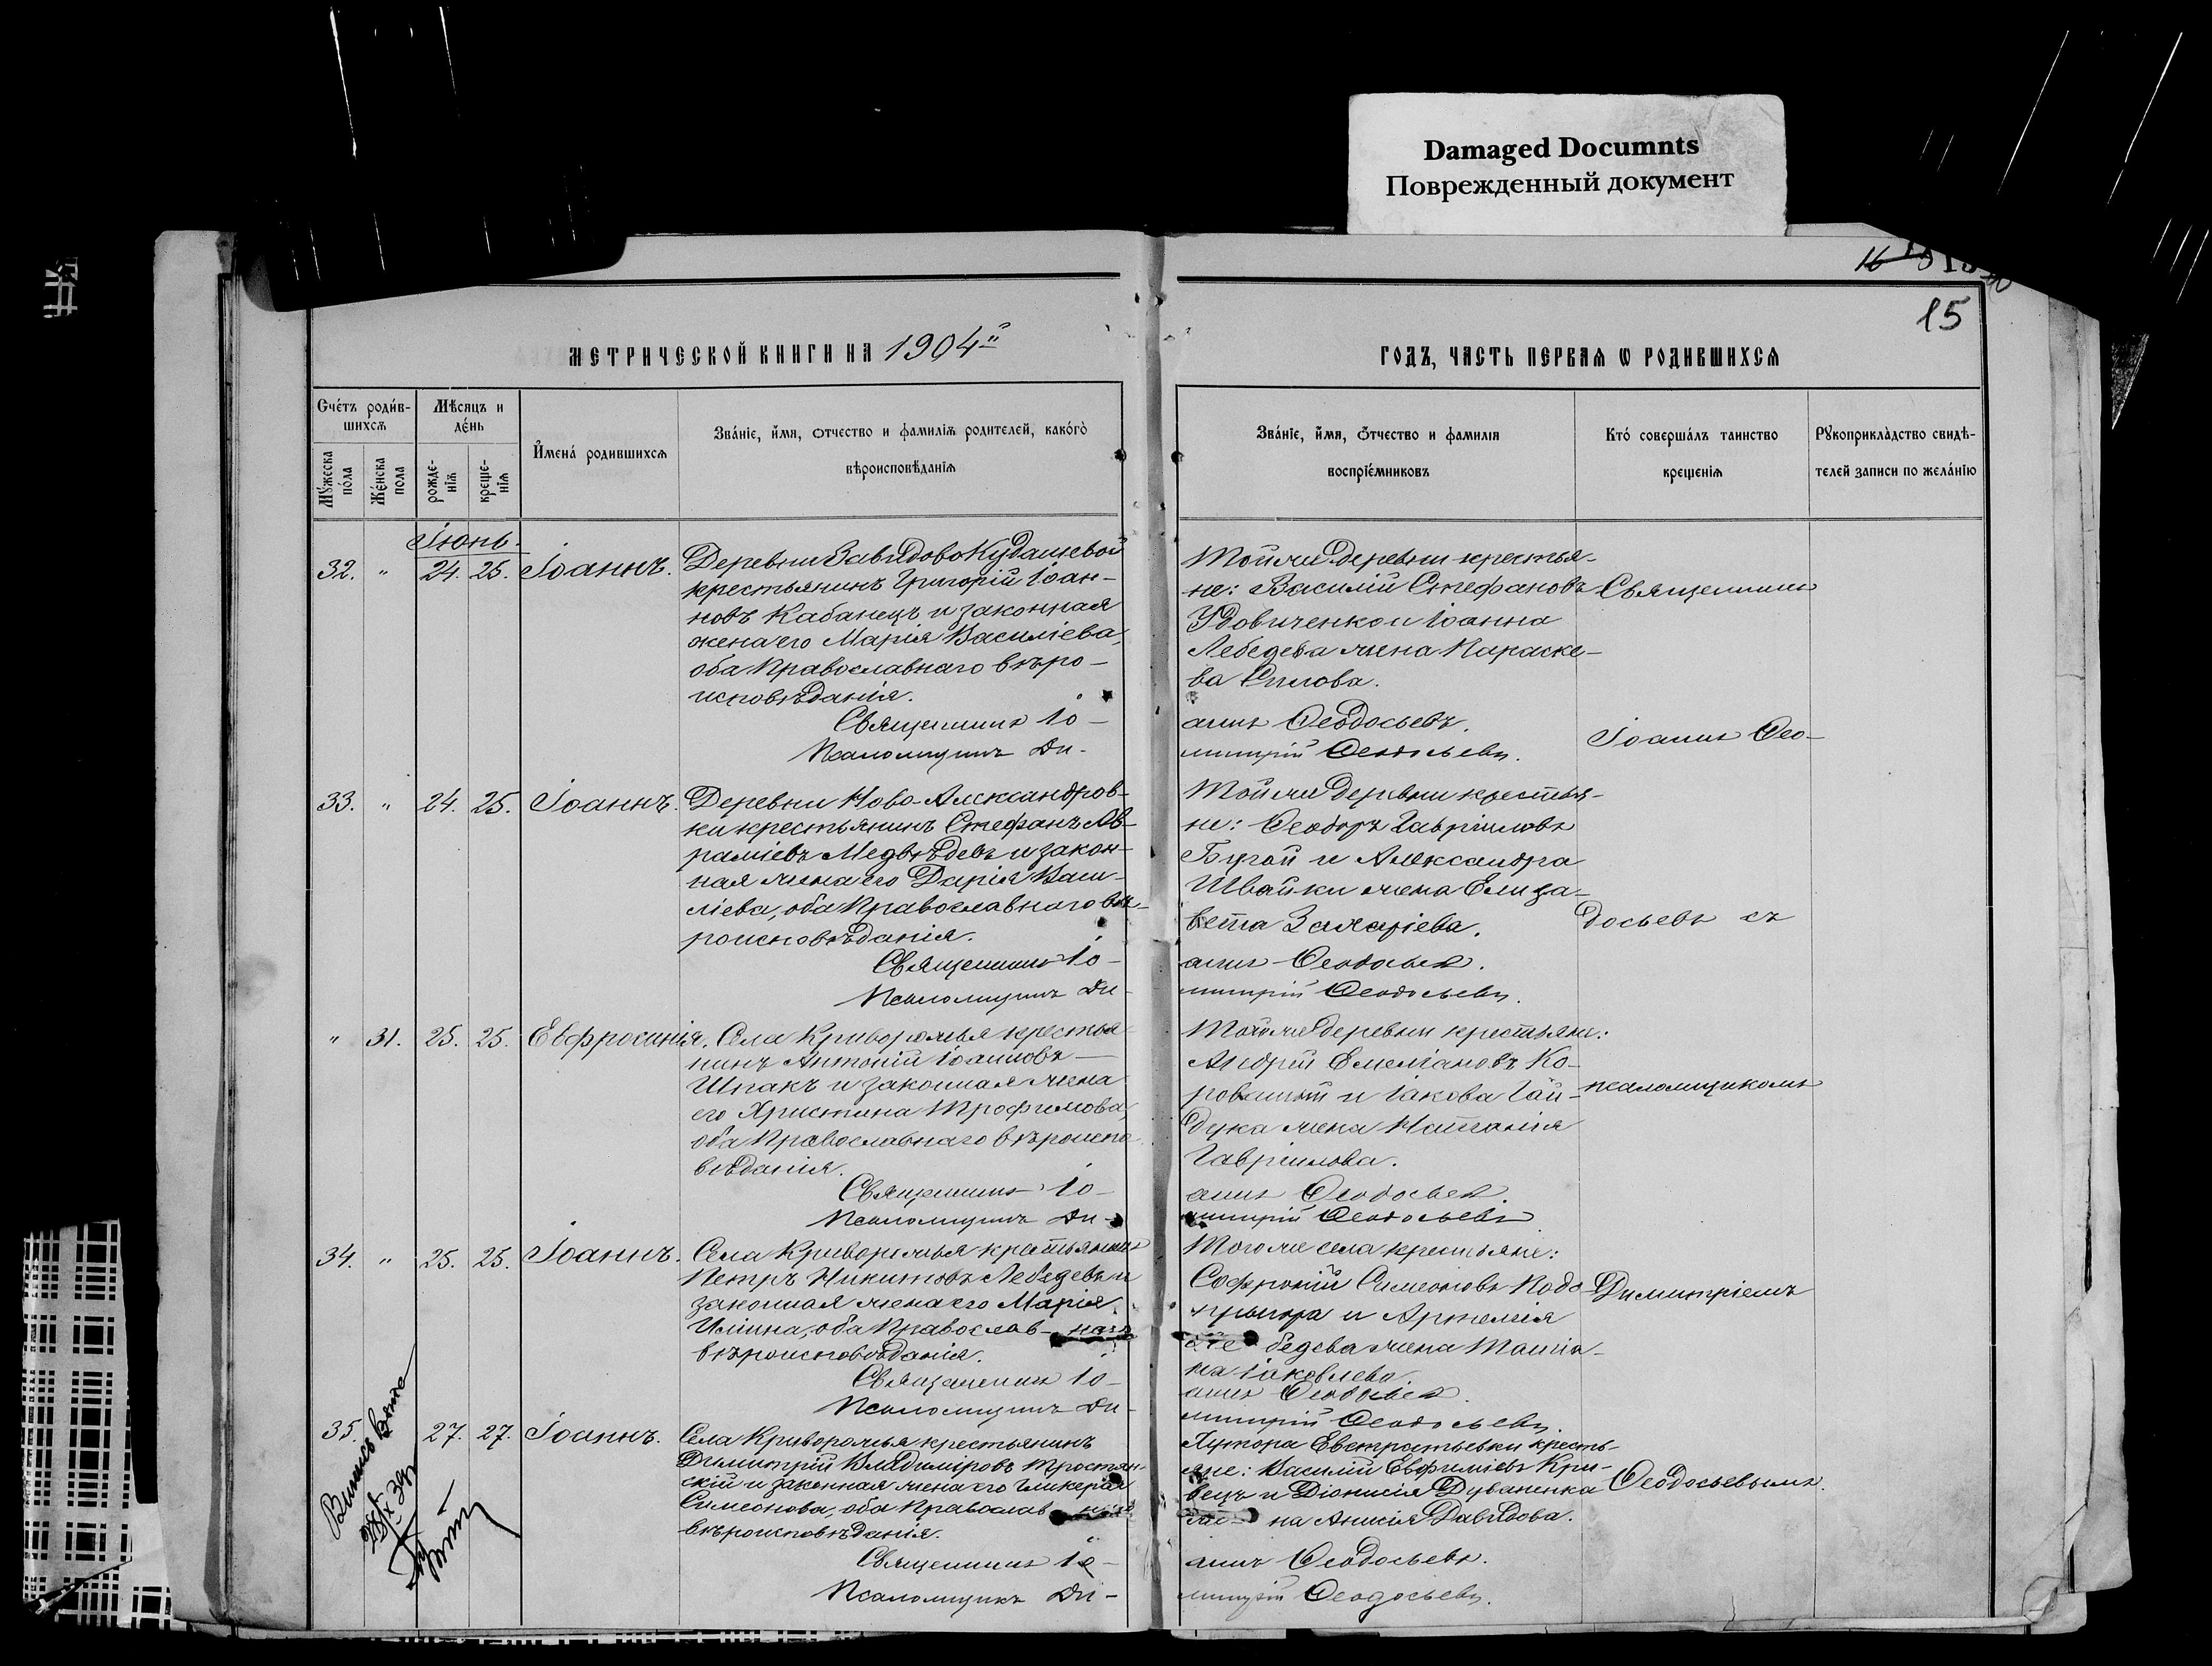 Damaged Documnts
Поврежденный документ
16
15
МЕТРИЧЕСКОЙ КНИГИ НА 1904й
ГОДЪ, ЧАСТЬ ПЕРВАЯ Ѡ РОДИВШИХСЯ
Счетъ родив-
шихся
Мужеска пола
Женска пола
Мѣсяцъ и день
рожде-
нія
креще-
нія
Имена родившихся
Званіе, имя, отчество и фамилія родителей, какого
вѣроисповѣданія
Званіе, имя, отчество и фамилія
воспріемниковъ
Кто совершалъ таинство
крещенія
Рукоприкладство свидѣ-
телей записи по желанію
Іюнь.
32. " 24. 25. Іоаннъ.
Деревни Завѣдово Кудашевой
крестьянинъ Григорій Іоан-
новъ Кабанецъ и законная
жена его Марія Василіева,
оба Православнаго вѣро-
исповѣданія.
Священникъ Іо-
Псаломщикъ Ди-
Той же деревни крестья-
не: Василій Стефановъ
Удовиченко и Іоанна
Лебедева жена Параске-
ва
аннъ Ѳеодосьевъ.
митрій Ѳеодосьевъ.
33. " 24. 25. Іоаннъ.
Деревни Ново-Александров-
ки крестьянинъ Стефанъ Ав-
раміевъ Медвѣдевъ и закон-
ная жена его Дарія Васи-
ліева, оба Православнаго вѣ-
роисповѣданія.
Священникъ Іо-
Псаломщикъ Ди-
Той же деревни крестья-
не: Ѳеодоръ Гавріиловъ
Бугай и Александра
Швайки жена Елиза-
вета Захаріева.
аннъ Ѳеодосьевъ.
митрій Ѳеодосьевъ.
" 31. 25. 25. Евфросинія.
Села Криворожья крестья-
нинъ Антоній Іоанновъ
Шпакъ и законная жена
его Христина Трофимова,
оба Православнаго вѣроиспо-
вѣданія.
Священникъ Іо-
Псаломщикъ Ди-
Той же деревни крестьяне:
Андрей Емеліановъ Ко-
рованый и Іакова Гай-
дука жена Наталія
Гавріилова.
аннъ Ѳеодосьевъ.
митрій Ѳеодосьевъ
34. " 25. 25. Іоаннъ.
Села Криворожья крестьянинъ
Петръ Никитовъ Лебедевъ и
законная жена его Марія
Иліина, оба Православ-наго
вѣроисповѣданія.
Священникъ Іо-
Псаломщикъ Ди-
Того же села крестьяне:
Софроній Симеоновъ
и Артемія
Ле-бедева жена Татіа-
на Іаковлева.
аннъ Ѳеодосьевъ.
митрій Ѳеодосьевъ.
35. 27. 27. Іоаннъ.
Села Криворожья крестьянинъ
Димитрій Владиміровъ Тростян-
скій и законная жена его Гликерія
Симеонова, оба Православ-наго
вѣроисповѣданія.
Священникъ Іо-
Псаломщикъ Ди-
Хутора Евстратьевки кресть-
яне: Василій Евфиміевъ Кри-
вецъ и Діонисія Дуваненка
же-на Анисія Давидова.
аннъ Ѳеодосьевъ.
митрій Ѳеодосьевъ.
Священникъ
Іоаннъ Ѳео-
досьевъ съ
псаломщикомъ
Димитріемъ
Ѳеодосьевымъ.